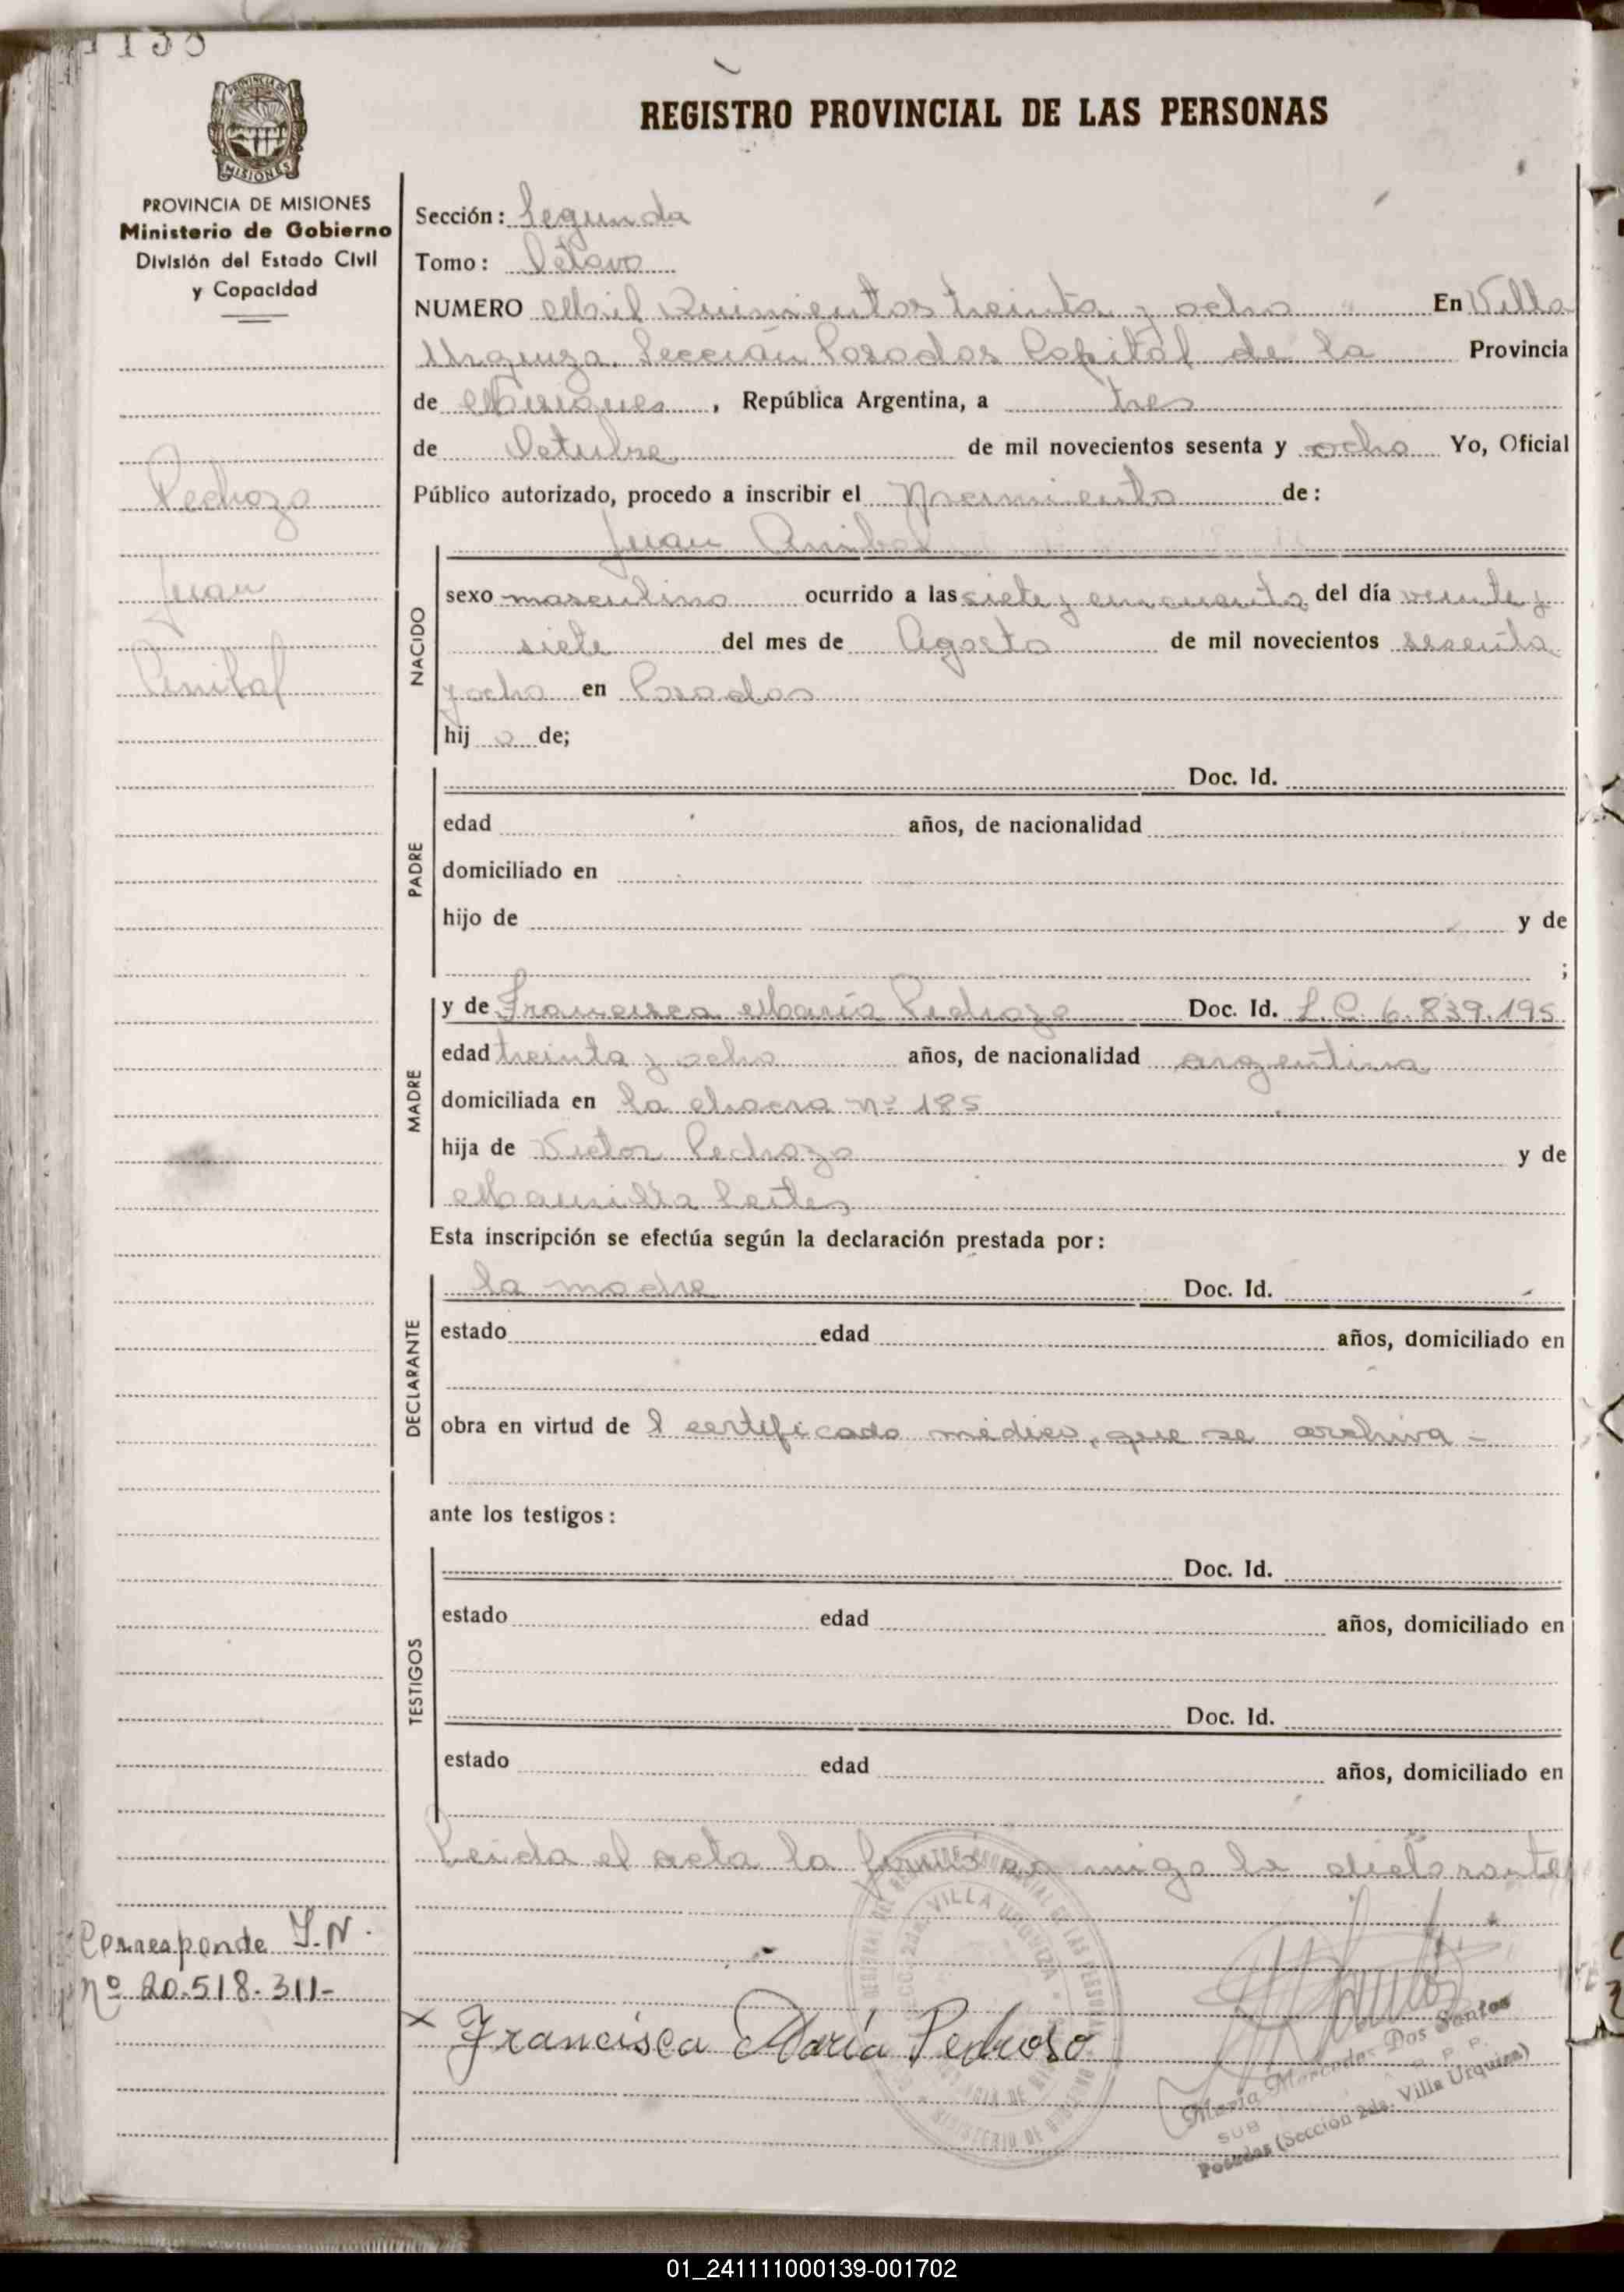 MISIONES
REGISTRO PROVINCIAL DE LAS PERSONAS
PROVINCIA DE MISIONES
Ministerio de Gobierno
División del Estado Civil
y Capacidad
Pedrozo
Juan
Anibal
Sección: Segunda
Tomo: Octavo
NUMERO Mil Quinientos treinta y ocho En Villa
Urquiza, Sección Posadas Capital de la Provincia
de Misiones, República Argentina, a tres
de Octubre de mil novecientos sesenta y ocho Yo, Oficial
Público autorizado, procedo a inscribir el Nacimiento de:
Juan Anibal
NACIDO
sexo masculino ocurrido a las siete y cincuenta del día veinte y
siete del mes de Agosto de mil novecientos sesenta
y ocho en Posadas
hij o de;
PADRE
Doc. Id.
edad años, de nacionalidad
domiciliado en
hijo de y de
;
MADRE
y de Francisca María Pedrozo Doc. Id. L.C. 6.839.195
edad treinta y ocho años, de nacionalidad argentina
domiciliada en la chacra nº 185
hija de Victor Pedrozo y de
Leites
Esta inscripción se efectúa según la declaración prestada por:
DECLARANTE
la madre Doc. Id.
estado edad años, domiciliado en
obra en virtud de l certificado médico, que se archiva -
ante los testigos:
TESTIGOS
Doc. Id.
estado edad años, domiciliado en
Doc. Id.
estado edad años, domiciliado en
Leida el acta la firmó con migo la declarante
Corresponde I.N.
nº 20.518.311-
x Francisca María Pedroso
VILLA URQUIZA
María Mercedes Dos Santos
SUB
Posadas (Sección 2da. Villa Urquiza)
01_241111000139-001702